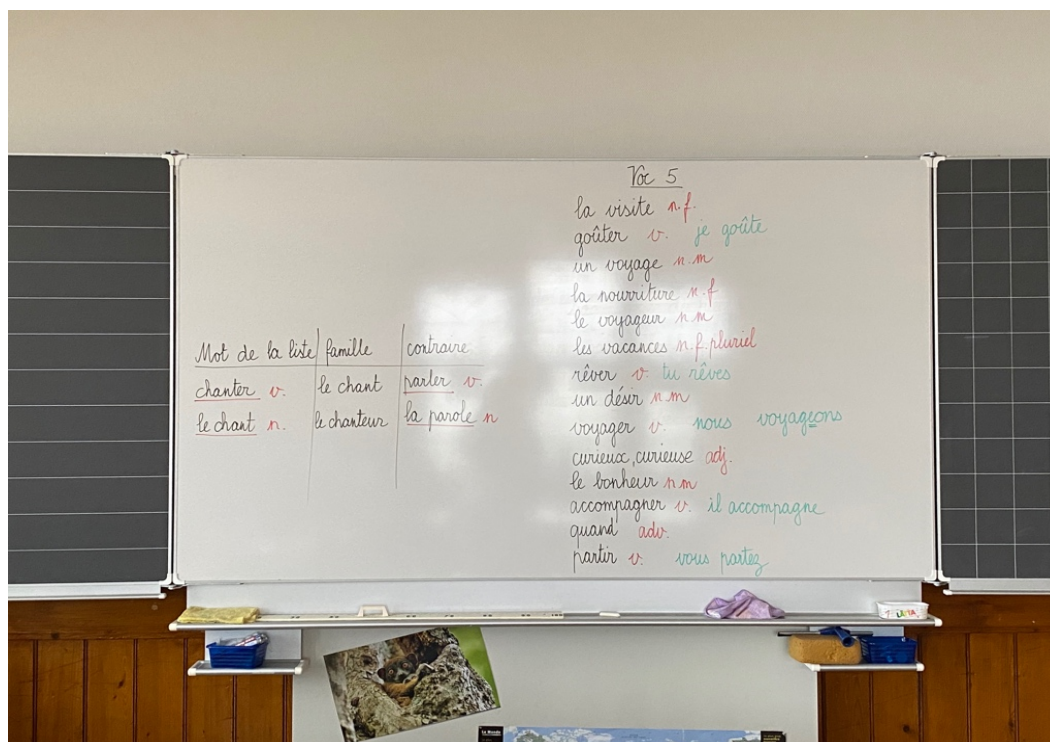 Mot de la liste famille contraire
chanter v. le chant parler v.
le chant n. le chanteur la parole n
Voc 5
la visite n.f.
goûter v. je goûte
un voyage n.m
la nourriture n.f
le voyageur n.m
les vacances n.f.pluriel
rêver v. tu rêves
un désir n.m
voyager v. nous voyageons
curieux, curieuse adj.
le bonheur n.m
accompagner v. il accompagne
quand adv.
partir v. vous partez
Le Monde